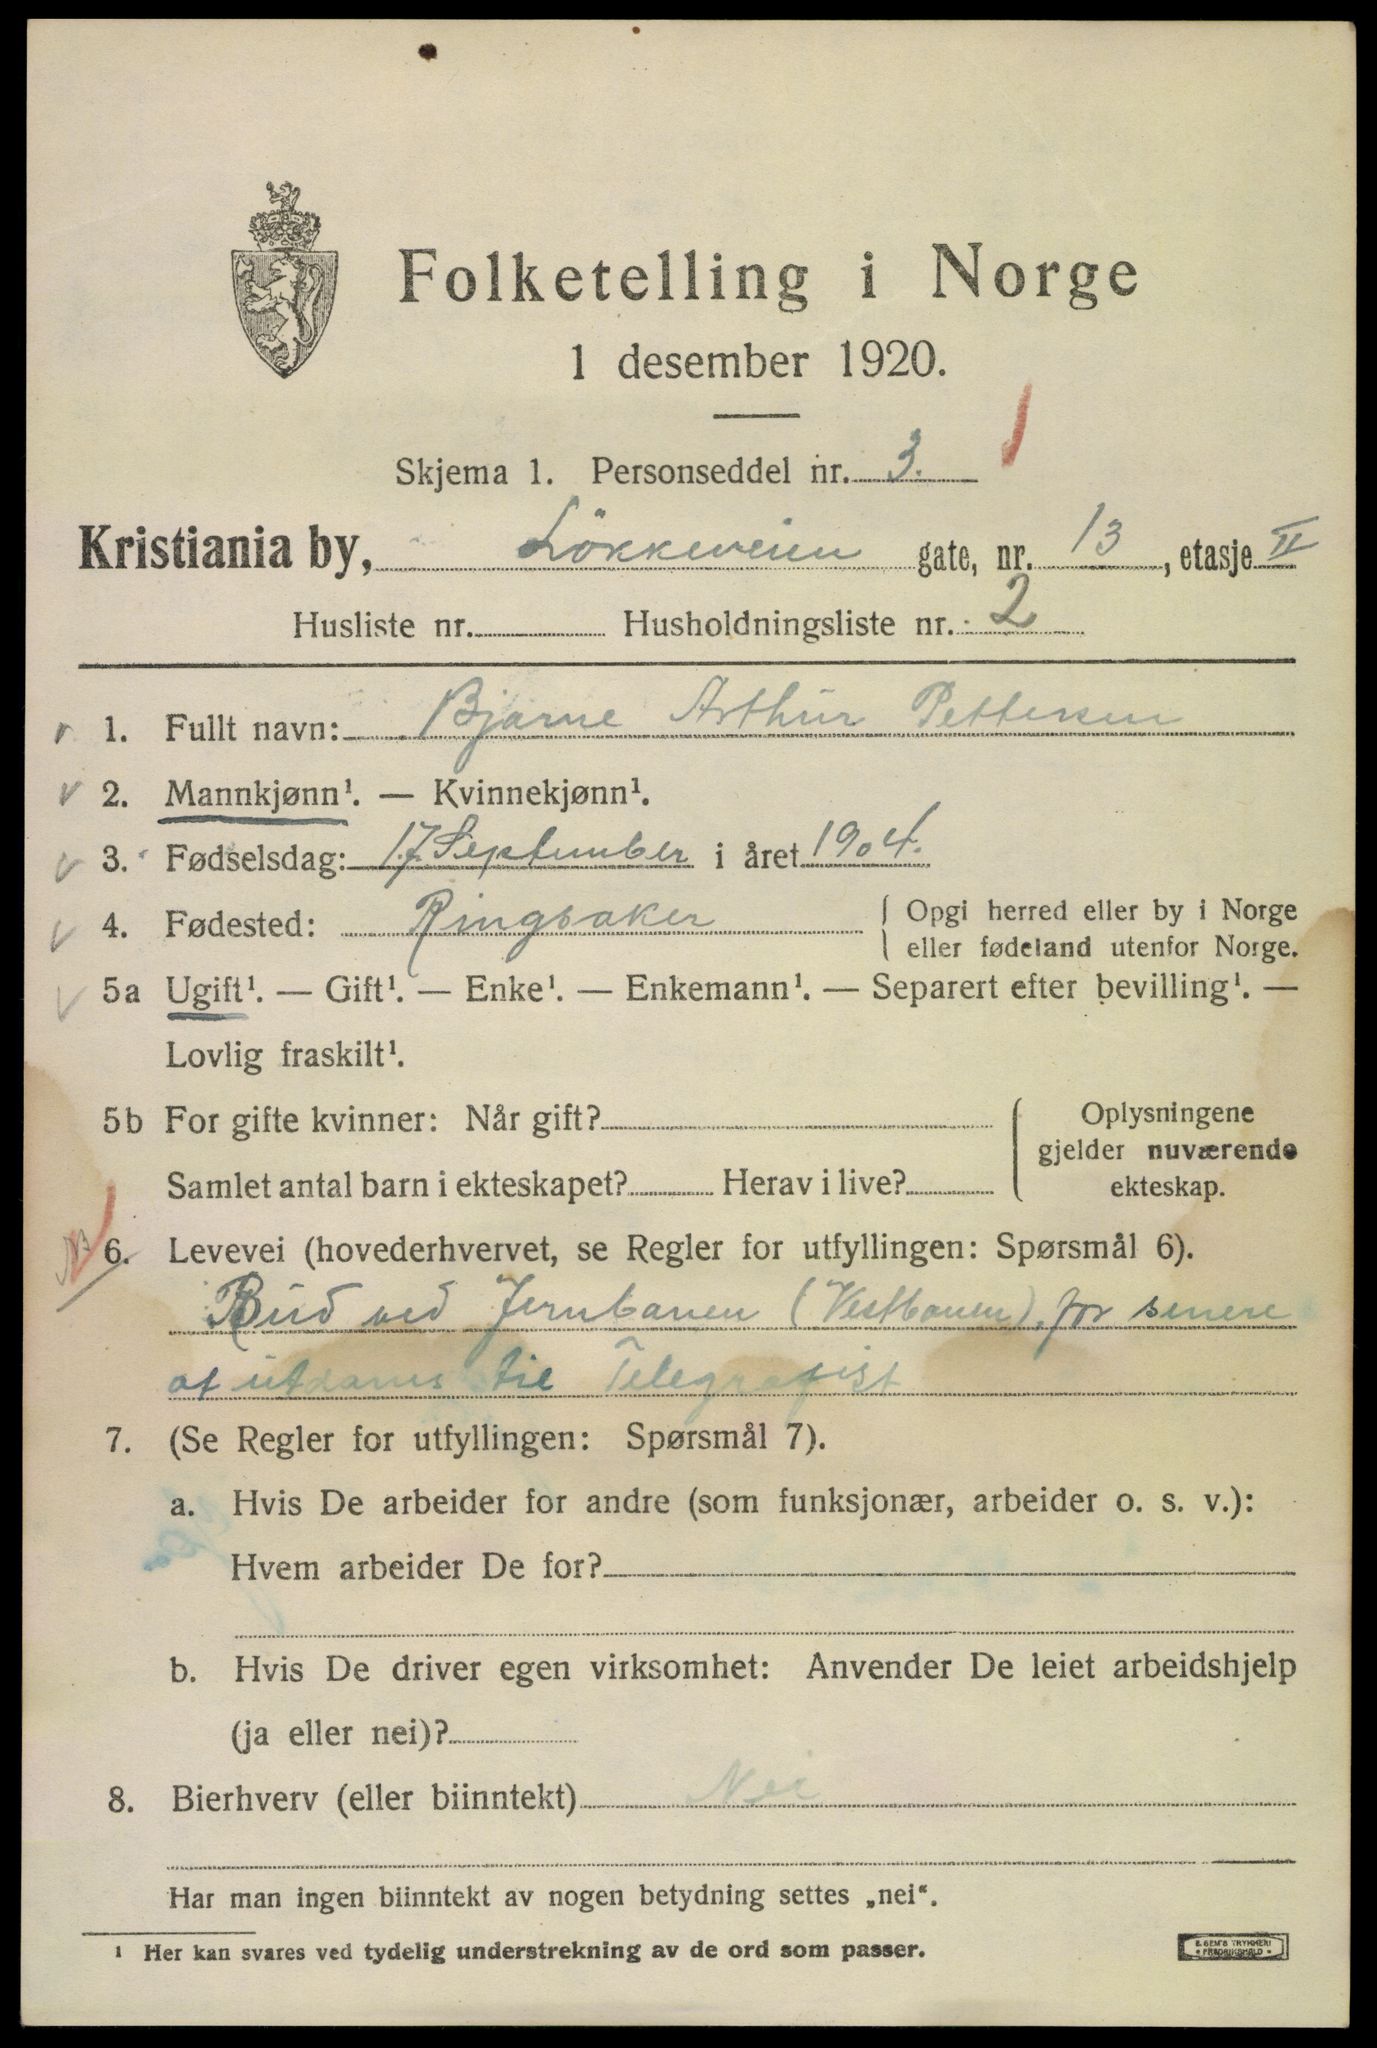 Folketelling i Norge
1 desember 1920.
Skjema 1. Personseddel nr. 3.
Kristiania by, Lökkeveien gate, nr. 13, etasje II
Husliste nr. Husholdningsliste nr. 2
1. Fullt navn: Bjarne Arthur Pettersen
2. Mannkjønn¹. — Kvinnekjønn¹.
3. Fødselsdag: 17 September i året 1904.
4. Fødested: Ringsaker
Opgi herred eller by i Norge
eller fødeland utenfor Norge.
5a Ugift¹. — Gift¹. — Enke¹. — Enkemann¹. — Separert efter bevilling¹. —
Lovlig fraskilt¹.
5b For gifte kvinner: Når gift?
Samlet antal barn i ekteskapet? Herav i live?
Oplysningene
gjelder nuværende
ekteskap.
6. Levevei (hovederhvervet, se Regler for utfyllingen: Spørsmål 6).
Bud ved Jernbanen (Vestbanen), for senere
at utdanes til Telegrafist
7. (Se Regler for utfyllingen: Spørsmål 7).
a. Hvis De arbeider for andre (som funksjonær, arbeider o. s. v.):
Hvem arbeider De for?
b. Hvis De driver egen virksomhet: Anvender De leiet arbeidshjelp
(ja eller nei)?
8. Bierhverv (eller biinntekt) Nei
Har man ingen biinntekt av nogen betydning settes „nei“.
¹ Her kan svares ved tydelig understrekning av de ord som passer.
E. SEM'S TRYKKERI
• FREDRIKSHALD •